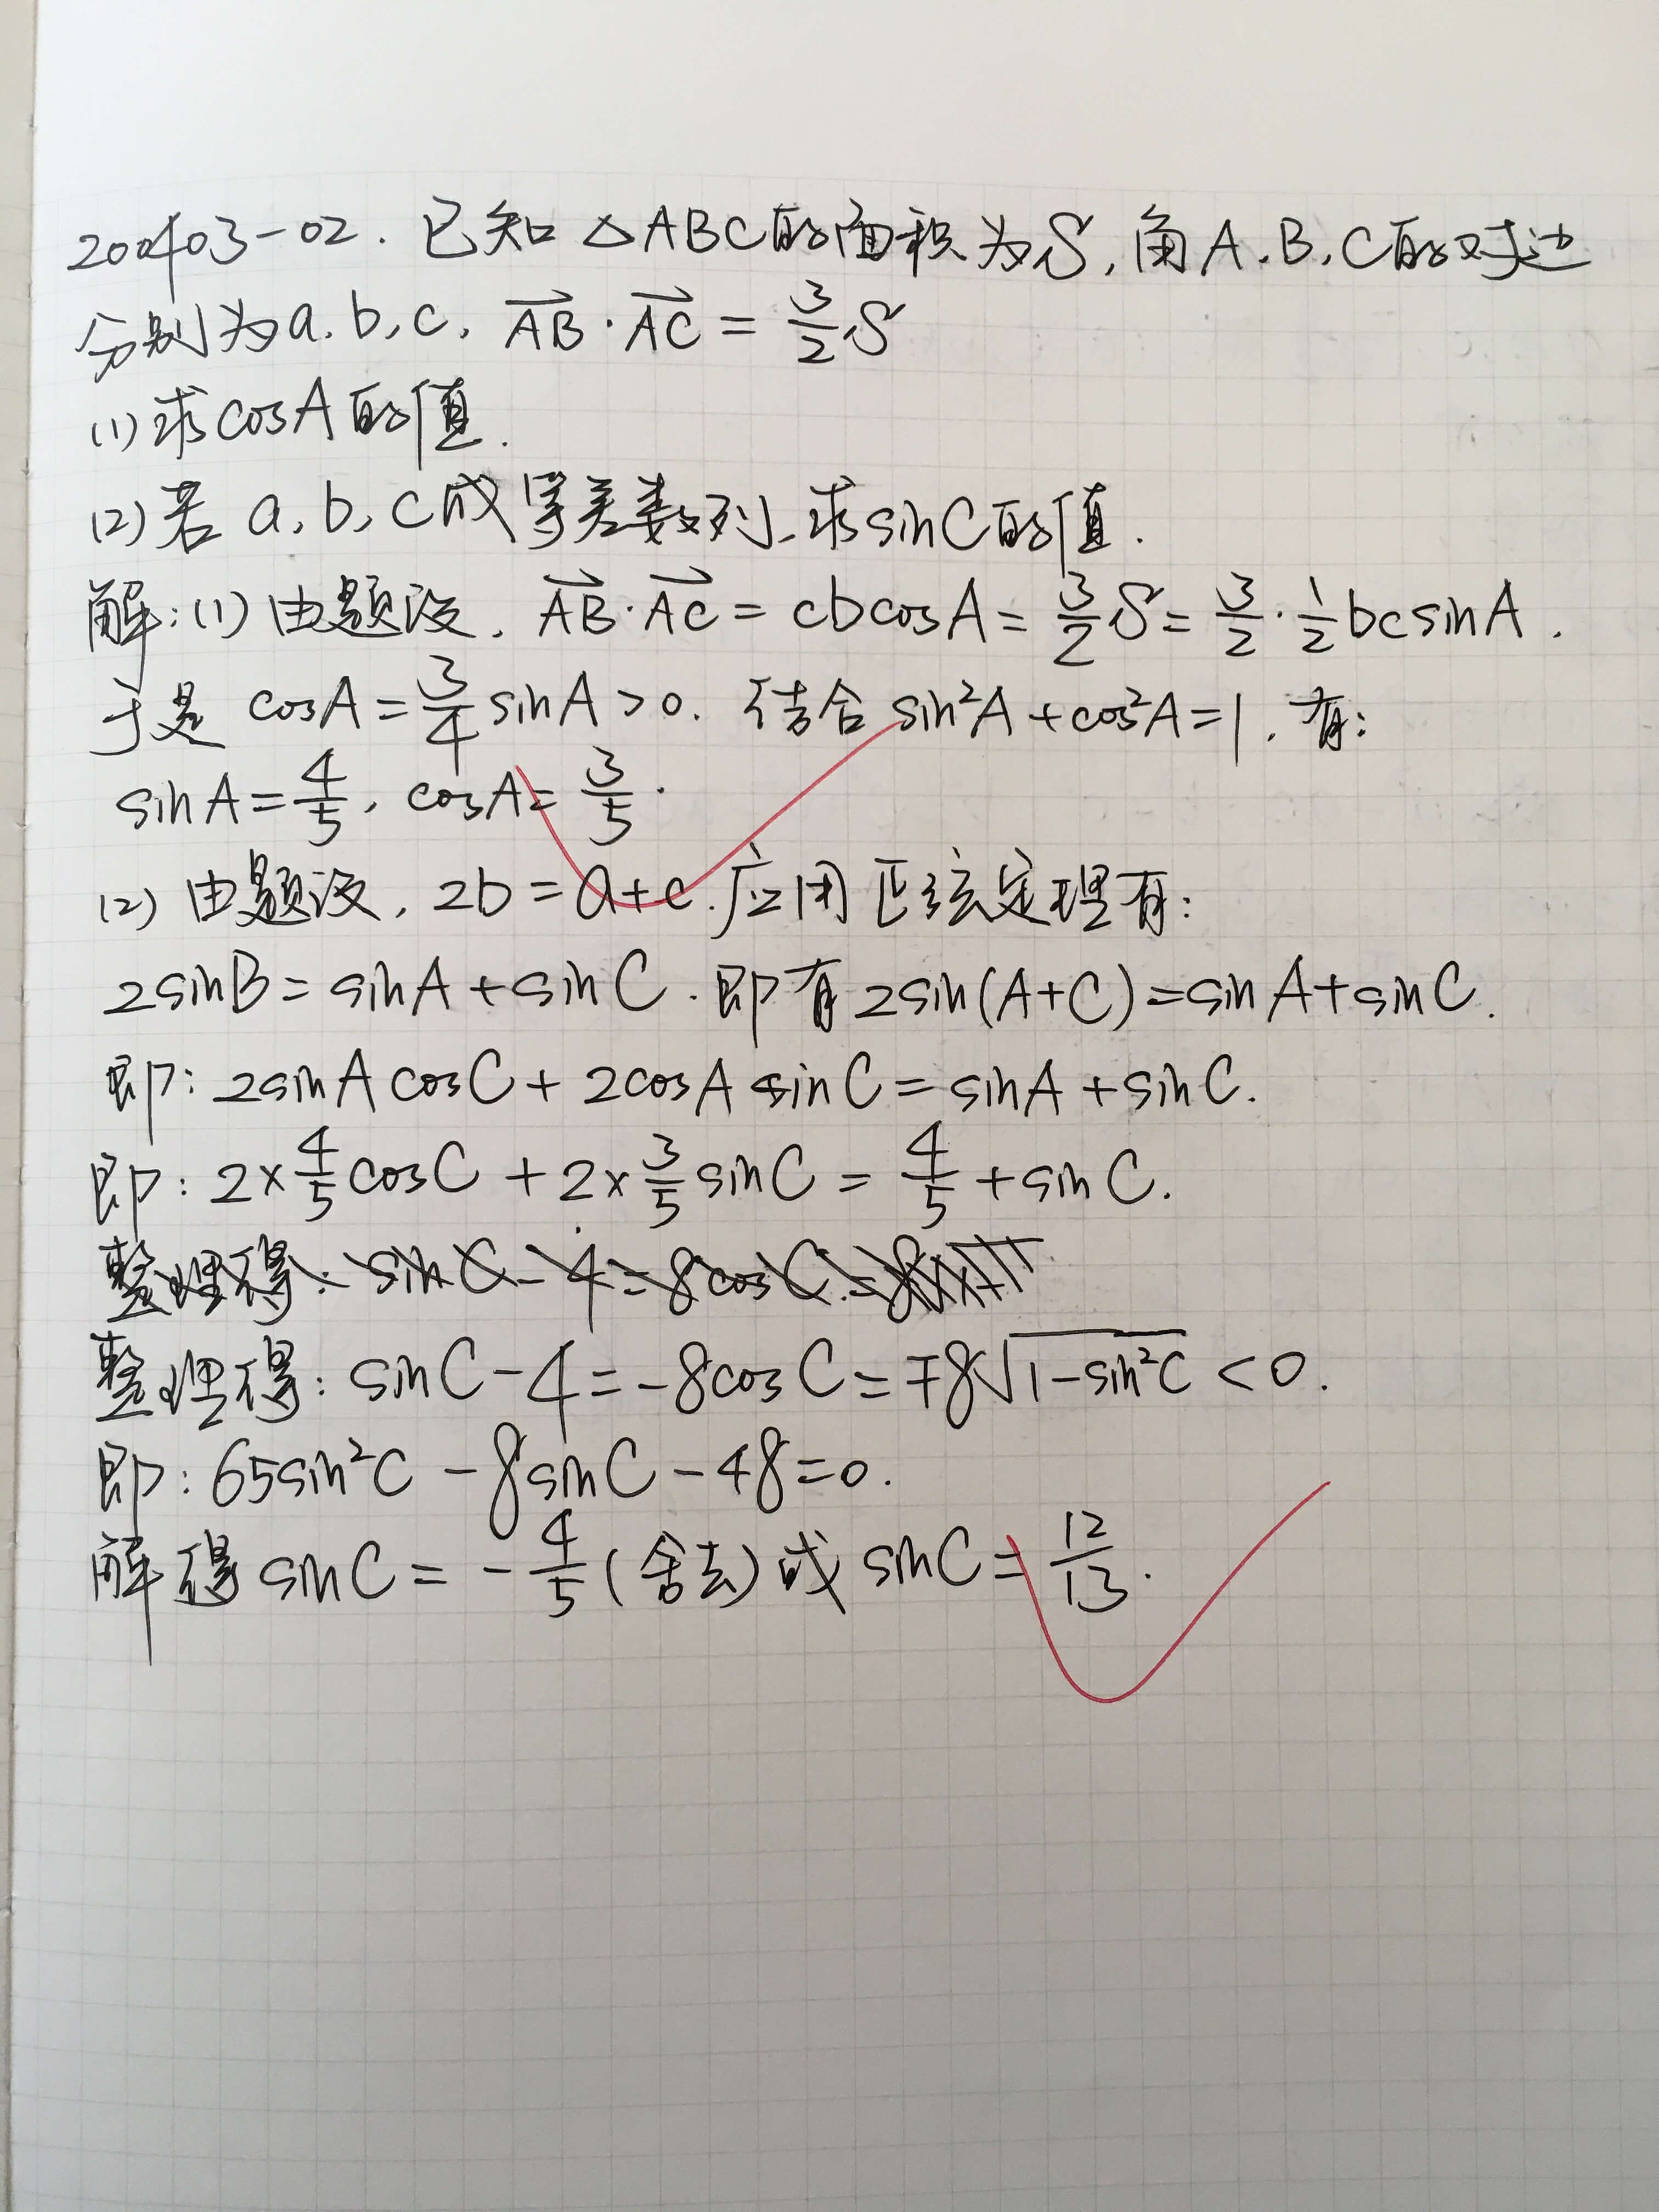 200403-02. 已知 △ABC的面积为S, 角A.B.C的对边
分别为a.b,c, AB·AC = 3/2 S
(1)求cosA的值.
(2)若 a,b,c成等差数列.求sinC的值.
解:(1) 由题设, AB·AC = cbcosA = 3/2 S = 3/2 · 1/2 bcsinA.
于是 cosA = 3/4 sinA > 0. 结合 sin²A + cos²A = 1. 有:
sinA = 4/5, cosA = 3/5.
(2) 由题设, 2b = a+c. 应用正弦定理有:
2sinB = sinA + sinC. 即有 2sin(A+C) = sinA + sinC.
即: 2sinA cosC + 2cosA sinC = sinA + sinC.
即: 2×4/5 cosC + 2×3/5 sinC = 4/5 + sinC.
整理得: sinC - 4 = 8cosC =
整理得: sinC - 4 = -8cosC = ∓8√(1-sin²C) < 0.
即: 65sin²C - 8sinC - 48 = 0.
解得 sinC = -4/5 (舍去) 或 sinC = 12/13.